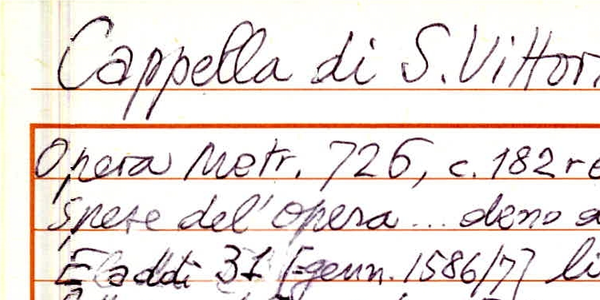 Cappella di S. Vittor
Opera Metr. 726, c. 182 r e
Spese del' opera ... deno a
E addì 31 [genn. 1586/7] li